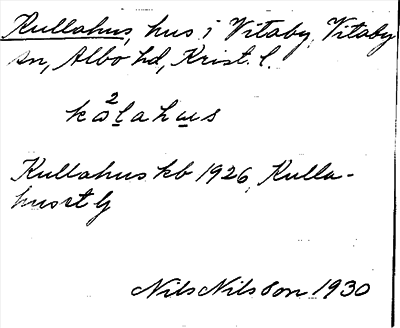 Kullahus, hus i Vitaby, Vitaby
sn, Albo hd, Krist. l.
kɷ²lahus
Kullahus kb 1926, Kulla-
husrt G
Nils Nilsson 1930